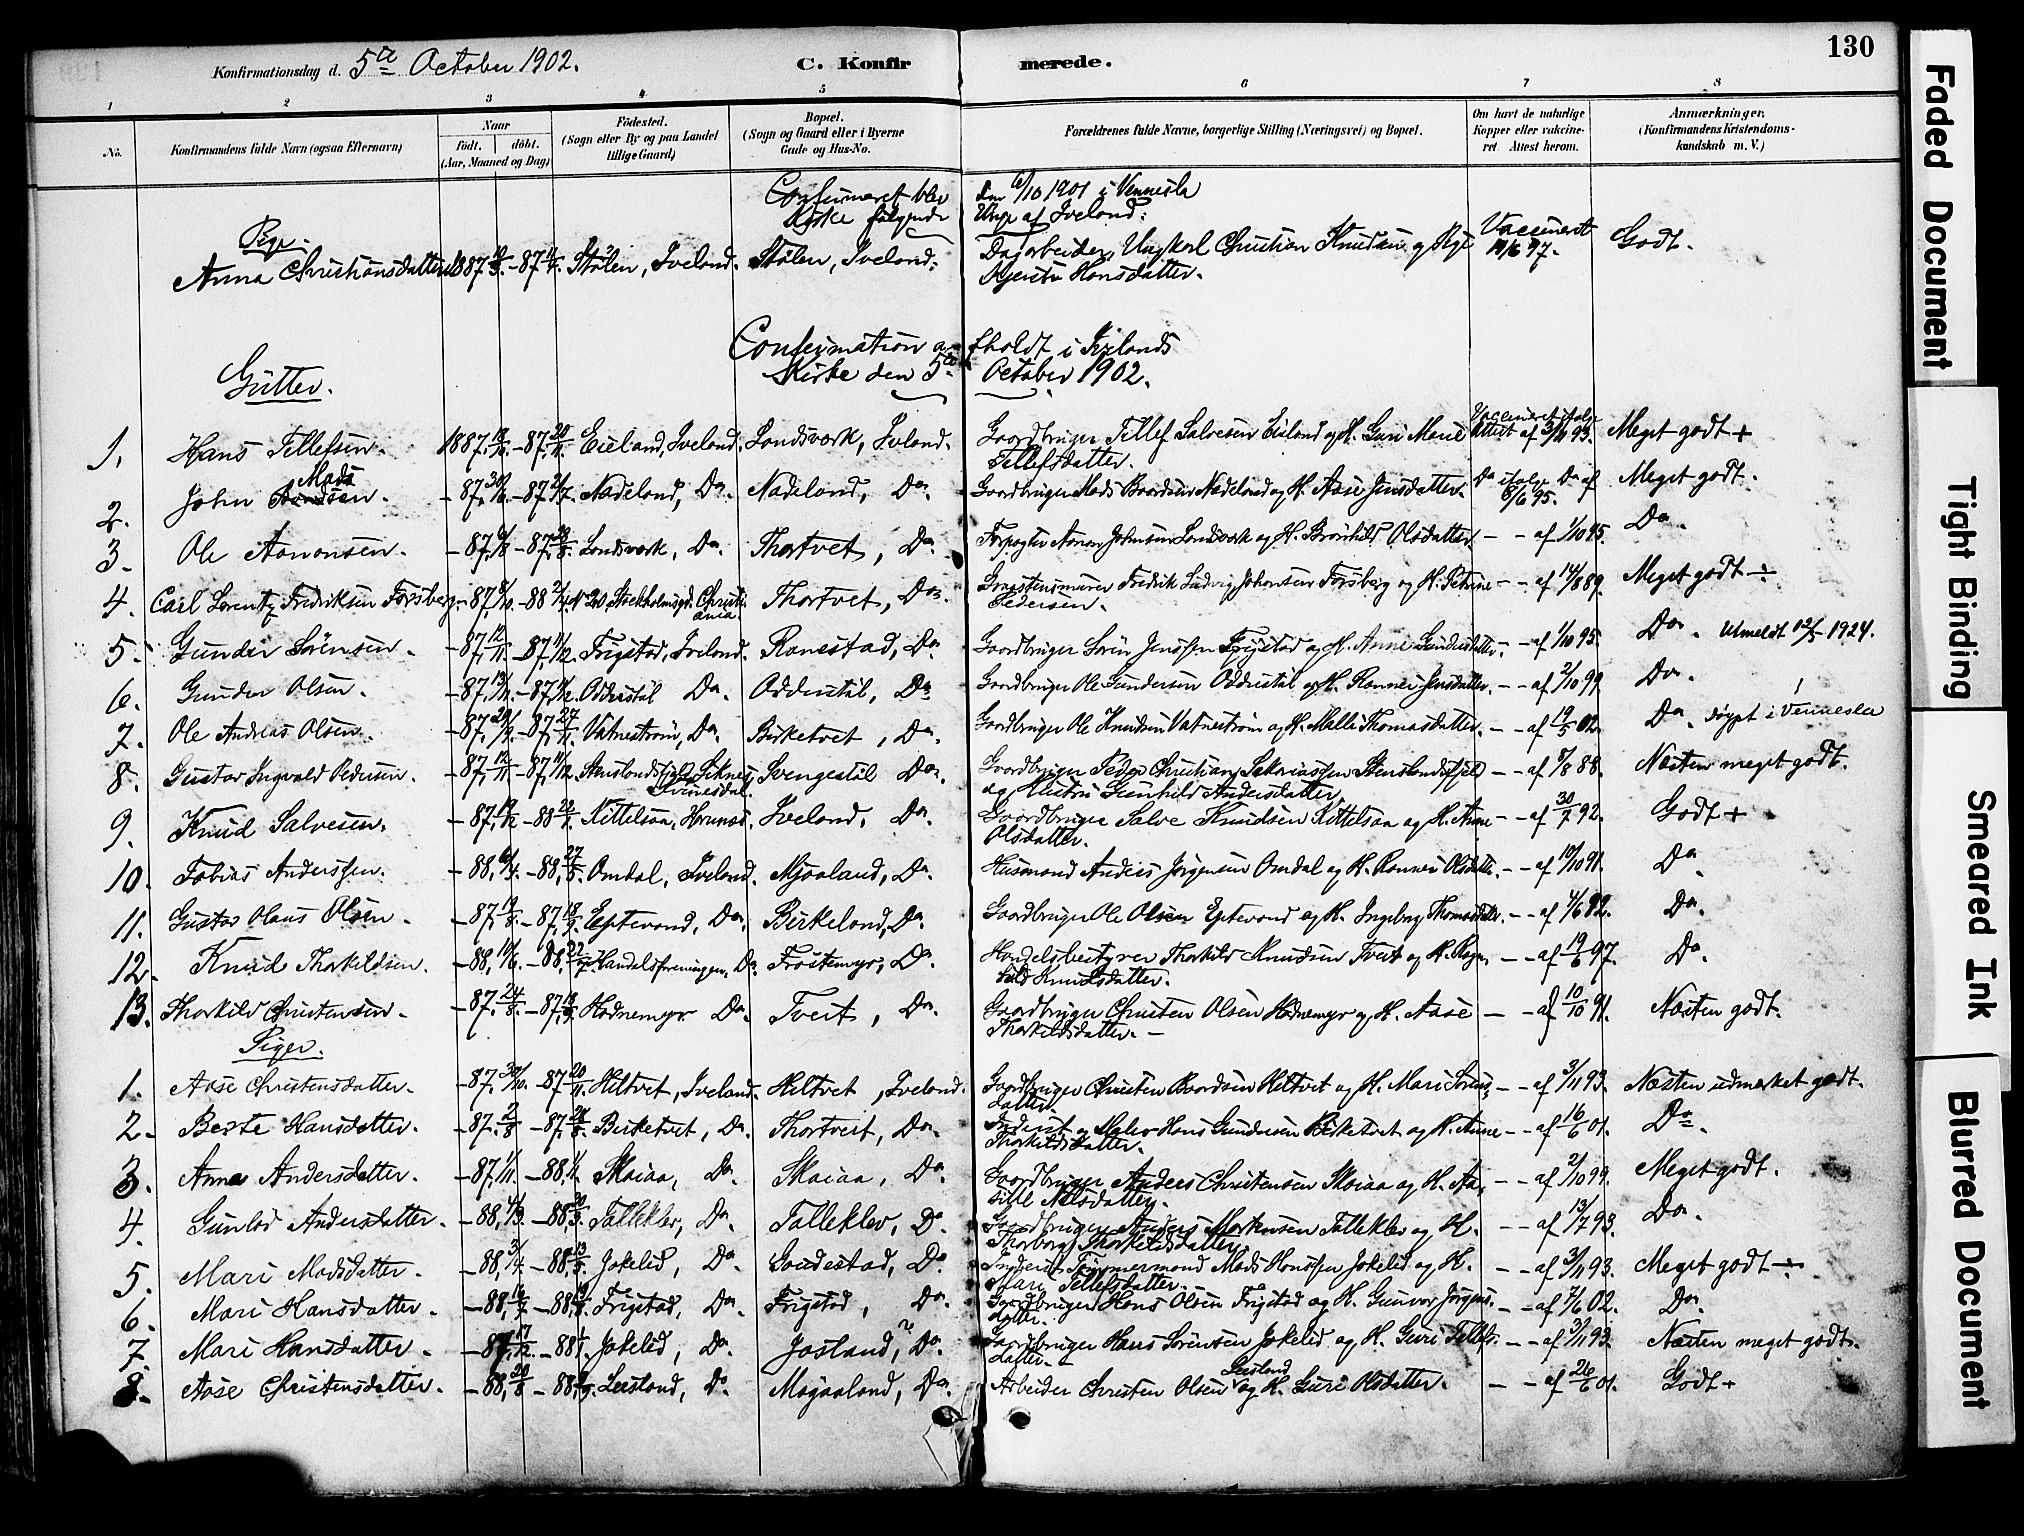 130
Konfirmationsdag d. 5te October 1902.
C. Konfirmerede.
1 2 3 4 5 6 7 8
No.
Konfirmandens fulde Navn (ogsaa Efternavn)
Naar
født. døbt.
(Aar, Maaned og Dag)
Fødested.
(Sogn eller By og paa Landet
tillige Gaard)
Bopæl.
(Sogn og Gaard eller i Byerne
Gade og Hus-No.
Forældrenes fulde Navne, borgerlige Stilling (Næringsvei) og Bopæl.
Om havt de naturlige
Kopper eller vaccine-
ret. Attest herom.
Anmærkninger.
(Konfirmandens Kristendoms-
kundskab m. V.)
Confirmeret blev den 6/10 1901 i Vennesla
Kirke følgende Unge af Iveland:
Pige:
Anna Christiansdatter 1887 - 87 Stølen, Iveland. Stølen, Iveland. Dagarbeider, Ungkarl Christian Knudsen og Pige Vaccineret 19/6 97. Godt.
Hansdatter.
Confirmation afholdt i Ivelands
Kirke den 5te October 1902.
Gutter.
1. Hans Tellefsen. 1887 - 87 Eieland, Iveland. Landsværk, Iveland. Gaardbruger Tellef Salvesen Eieland og H. Guri Marie Vaccineret ifølge Attest af 3/11 93. Meget godt +
Tellefsdatter.
2. John Mads - 87 30/6 - 87 Nadeland, Do. Nadeland, Do. Gaardbruger Mads Baardsen Nadeland og H. Aase Jensdatter. Do ifølge Do af 8/6 95. Meget godt.
3. Ole Aanonsen. - 87 - 87 Landsværk, Do. Thortvet, Do. Aanon Johnsen Landsværk og H. Brønhild Olsdatter. - - af 1/10 95. Do.
4. Carl Lorentz Fredriksen Forsberg. - 87 - 88 Stockholmsgd. Christiania. Thortvet, Do. Fredrik Ludvig Johansen Forsberg og H. Petrine - - af 14/8 89. Meget godt ÷
Pedersen.
5. Gunder Sørensen. - 87 12/11 - 87 11/12 Frigstad, Iveland. Ranestad, Do. Gaardbruger Sören Jenssen Frigstad og H. Anne Gundersdatter. - - af 1/10 95. Do. Utmeldt 1924.
6. Gunder Olsen. - 87 13/11 - 87 Oddestøl Do. Oddestøl, Do. Gaardbruger Ole Gundersen Oddestøl og H. Jensdatter. - - af 2/10 99 Do.
7. Ole Andreas Olsen. - 87 - 87 Vatnestrøm, Do. Birketvet, Do. Gaardbruger Ole Knudsen Vatnestrøm og H. Malli Thomasdatter. - - af 19/5 02. Do. døypt i Vennesla
8. Gustav Ingvald Pedersen. - 87 12/11 - 87 11/12 Stenslandsfjeld, Svengestøl Do. Gaardbruger Peder Christian Sakariassen Stenslandsfjeld - - af 8/8 88. Næsten meget godt.
og Hustru Gunhild Andersdatter.
9. Knud Salvesen. - 87 - 88 Kittelsaa, Iveland, Do. Gaardbruger Salve Knudsen Kittelsaa og H. Anne - - af 30/7 92. Godt +
Olsdatter.
10. Tobias Anderssen. - 88 - 88 27/5 Omdal, Iveland. Mjaaland, Do. Husmand Anders Jørgensen Omdal og H. Olsdatter. - - af 10/10 91. Do.
11. Gustav Olaus Olsen. - 87 19/8 - 87 18/9 Eptevand, Do. Birkeland, Do. Gaardbruger Ole Olsen Eptevand og H. Ingeborg Thomasdatter. - - af 4/6 92. Do.
12. Knud Thorkildsen. - 88 - 88 Handelsforeningen, Do. Frøstemyr, Do. Handelsbestyrer Thorkild Knudsen Tveit og H. Ragn- - - af 19/6 97. Do
hild Knudsdatter.
13. Thorkild Christensen. - 87 24/8 - 87 Hodnemyr Do. Tveit, Do. Gaardbruger Christen Olsen Hodnemyr og H. Aase - - af 10/10 91. Næsten godt.
Thorkildsdatter.
Piger.
1. Aase Christensdatter. - 87 30/10 - 87 20/11 Hiltvet, Iveland. Hiltvet, Iveland. Gaardbruger Christen Baardsen Hiltvet og H. Mari Sørens- - - af 3/11 93. Næsten udmærket godt.
datter.
2. Berte Hansdatter. - 87 2/8 - 87 Birketvet, Do. Thortveit, Do. Inderst og Maler Hans Gundersen Birketvet og H. Anne - - af 16/6 01. Do.
Thorkildsdatter.
3. Anna Andersdatter. - 87 1/11 - 88 Skaiaa, Do. Skaiaa, Do. Gaardbruger Anders Christensen Skaiaa og H. - - af 2/10 99. Meget godt.
Nilsdatter.
4. Gunlød Andersdatter. - 88 4/3 - 88 Talleklev, Do. Talleklev, Do. Gaardbruger Anders Mortensen Talleklev og H. - - af 13/7 93. Do.
Thorborg Thorkildsdatter.
5. Mari Madsdatter. - 88 - 88 13/5 Jokelid, Do. Gaudestad, Do. Inderst Tømmermand Mads Hanssen Jokelid og H. - - af 3/11 93. Meget godt ÷
Mari Tellefsdatter.
6. Mari Hansdatter. - 88 - 88 Frigstad, Do. Frigstad, Do. Gaardbruger Hans Olsen Frigstad og H. Gunvor Jørgens- - - af 7/6 02. Do.
datter.
7. Mari Hansdatter. - 87 17/12 - 88 Jokelid, Do. Josland, Do. Gaardbruger Hans Sørensen Jokelid og H. Guri Tellefs- - - af 3/11 93. Næsten meget godt.
datter.
8. Aase Christensdatter. - 88 - 88 Leesland, Do. Mogaaland, Do. Arbeider Christen Olsen Leesland og H. Guri Olsdatter. - - af 26/6 01. Godt +
Faded Document
Tight Binding
Smeared Ink
Blurred Document